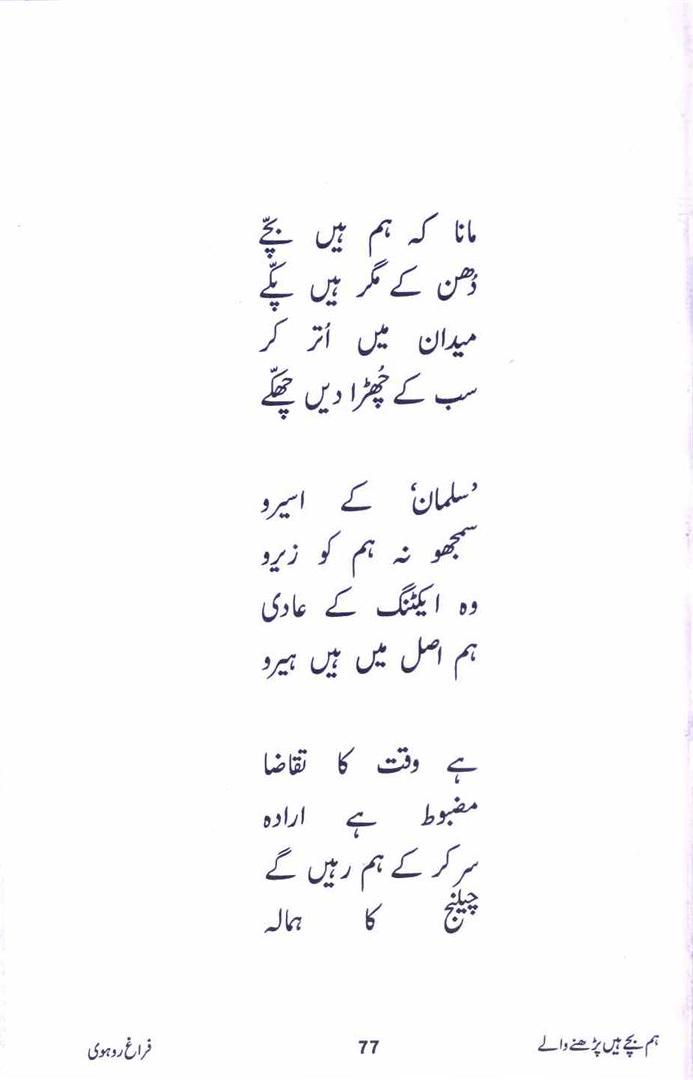 مانا کہ ہم ہیں بچّے
دُھن کے مگر ہیں پکّے
میدان میں اُتر کر
سب کے چُھڑا دیں چھکّے
’سلمان‘ کے اسیرو
سمجھو نہ ہم کو زیرو
وہ ایکٹنگ کے عادی
ہم اصل میں ہیں ہیرو
ہے وقت کا تقاضا
مضبوط ہے ارادہ
سر کر کے ہم رہیں گے
چیلنج کا ہمالہ
ہم بچے ہیں پڑھنے والے
77
فراغ روہوی